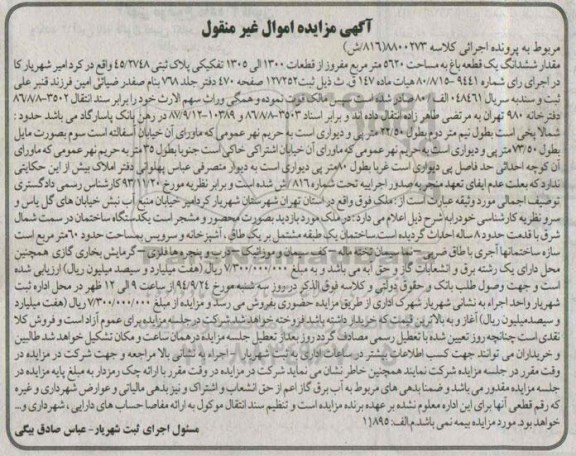 آگهی مزایده اموال غیر منقول
مربوط به پرونده اجرائی کلاسه ۸۸۰۰۲۷۳(۸۱۶/ش)
مقدار ششدانگ یک قطعه باغ به مساحت ۵۶۲۰ متر مربع مفروز از قطعات ۱۳۰۰ الی ۱۳۰۵ تفکیکی پلاک ثبتی ۴۵/۲۷۴۸ واقع در کردامیر شهریار که
در اجرای رای شماره ۹۴۴۱-۸۰/۸/۱۵ هیات ماده ۱۴۷ ق ث ذیل ثبت ۱۲۷۲۵۲ صفحه ۴۷۰ دفتر جلد ۷۶۸ بنام صفدر ضیائی امین فرزند قنبر علی
ثبت و سند به سریال ۰۴۸۴۶۱ الف مالک فوت نموده و همگی وراث سهم الارث خود را برابر سند انتقال ۳۵۰۲-۸۶/۸/۸
دفترخانه ۹۸۰ تهران به مرتضی طاهر زاده انتقال داده اند و برابر اسناد ۳۵۰۳-۸۶/۸/۸ و ۱۰۳۸۹-۸۷/۹/۱۲ در رهن بانک پاسارگاد می باشد حدود:
شمالا پخی است بطول نیم متر دوم بطول ۲۲/۵۰ متر پی و دیواری است به حریم نهر عمومی که ماورای آن خیابان آسفالته است سوم بصورت مایل
بطول ۷۳/۵۰ متر پی و دیواری است به حریم نهر عمومی که ماورای آن خیابان اشتراکی خاکی است جنوبا بطول ۳۵ متر به حریم نهر عمومی که ماورای
آن کوچه احداثی حد فاصل پی دیواری است غربا بطول ۸۰ متر پی دیواری است به دیوار متصرفی عباس پهلوانی دفتر املاک بیش از این حکایتی
ندارد که بعلت عدم ایفای تعهد منجر به صدور اجراییه تحت شماره ۸۱۶/ش شده است و برابر نظریه مورخ ۹۳/۱۱/۲۰ کارشناس رسمی دادگستری
توصیف اجمالی مورد وثیقه عبارت است از: ملک فوق واقع در استان تهران شهرستان شهریار کردامیر خیابان منبع آب نبش خیابان های گل یاس و
سرو نظریه کارشناسی خود را به شرح ذیل اعلام می دارد: در ملک مورد بازدید بصورت محصور و مشجر است یکدستگاه ساختمان در سمت شمال
شرق با قدمت حدود ۸ ساله احداث گردیده است. ساختمان یک طبقه مشتمل بر یک طاق، آشپزخانه و سرویس بمساحت حدود ۶۰ متر مربع است
سازه ساختمانها آجری با طاق ضربی کف سیمان و موزائیک درب و پنجره ها فلزی گرمایش بخاری گازی همچنین
محل دارای یک رشته برق و انشعابات گاز و حق آبه می باشد و به مبلغ ۷/۳۰۰/۰۰۰/۰۰۰ ریال (هفت میلیارد و سیصد میلیون ریال) ارزیابی شده
است و جهت وصول طلب بانک و حقوق دولتی و کلاسه فوق الذکر در روز سه شنبه مورخ ۹۴/۹/۲۴ از ساعت ۹ الی ۱۲ ظهر در محل اداره ثبت
شهریار واحد اجراء به نشانی شهریار شهرک اداری از طریق مزایده حضوری بفروش می رسد و مزایده از مبلغ ۷/۳۰۰/۰۰۰/۰۰۰ ریال (هفت میلیارد
و سیصد میلیون ریال) آغاز و به بالاترین قیمت که خریدار داشته باشد فروخته خواهد شد. شرکت در جلسه مزایده برای عموم آزاد است و فروش کلا
نقدی است چنانچه روز تعیین شده با تعطیل رسمی مصادف گردد روز بعد از تعطیل جلسه مزایده در همان ساعت و مکان تشکیل خواهد شد طالبین
و خریداران می توانند جهت کسب اطلاعات بیشتر در ساعات اداری به اداره ثبت شهریار - اجراء به نشانی بالا مراجعه و جهت شرکت در مزایده در
وقت مقرر در جلسه مزایده شرکت نمایند همچنین خاطر نشان می نماید شرکت در مزایده در وقت مقرر با ارائه چک رمزدار به مبلغ پایه مزایده در
جلسه مزایده مقدور می باشد و ضمنا بدهی های مربوط به آب برق گاز اعم از حق انشعاب و اشتراک و نیز بدهی مالیاتی و عوارض شهرداری و غیره
که رقم قطعی آنها برای این اداره معلوم نشده بر عهده برنده مزایده است و تنظیم سند انتقال موکول به ارائه مفاصا حساب های دارایی، شهرداری و...
خواهد بود. مورد مزایده بیمه نمی باشد. م الف: ۱۸۹۵)
مسئول اجرای ثبت شهریار- عباس صادق بیگی